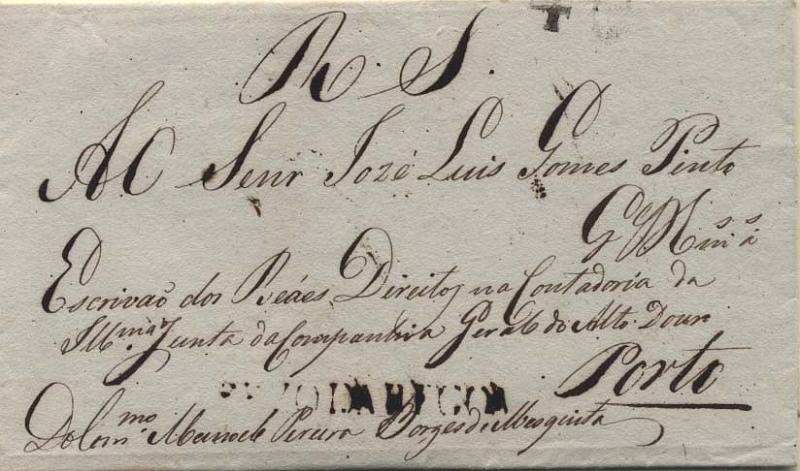 R. S.
Ao Senr Jozé Luis Gomes Pinto
Gde
Escrivaõ dos Reáes Direitos na Contadoria da
Illma. Junta da Companhia Geral do Alto Douro
Porto
Do Commo. Manoel Pereira Borges de Mesquita